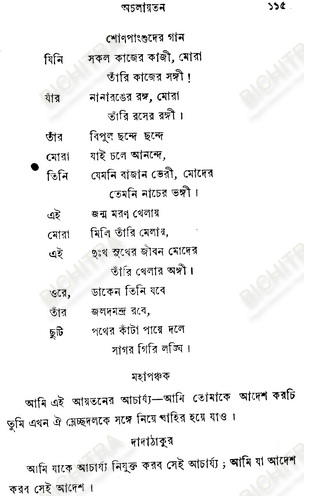 অচলায়তন ১১৫
শোণপাংশুদের গান
যিনি সকল কাজের কাজী, মোরা
তাঁরি কাজের সঙ্গী!
যাঁর নানারঙের রঙ্গ, মোরা
তাঁরি রসের রঙ্গী।
তাঁর বিপুল ছন্দে ছন্দে
মোরা যাই চলে আনন্দে,
তিনি যেমনি বাজান ভেরী, মোদের
তেমনি নাচের ভঙ্গী।
এই জন্ম মরণ খেলায়
মোরা মিলি তাঁরি মেলায়,
এই দুঃখ সুখের জীবন মোদের
তাঁরি খেলার অঙ্গী।
ওরে, ডাকেন তিনি যবে
তাঁর জলদমন্দ্র রবে,
ছুটি পথের কাঁটা পায়ে দলে
সাগর গিরি লঙ্ঘি।
মহাপঞ্চক
আমি এই আয়তনের আচার্য্য—আমি তোমাকে আদেশ করচি
তুমি এখন ঐ ম্লেচ্ছদলকে সঙ্গে নিয়ে বাহির হয়ে যাও।
দাদাঠাকুর
আমি যাকে আচার্য্য নিযুক্ত করব সেই আচার্য্য; আমি যা আদেশ
করব সেই আদেশ।
BICHITRA
BICHITRA
BICHITRA
BICHITRA